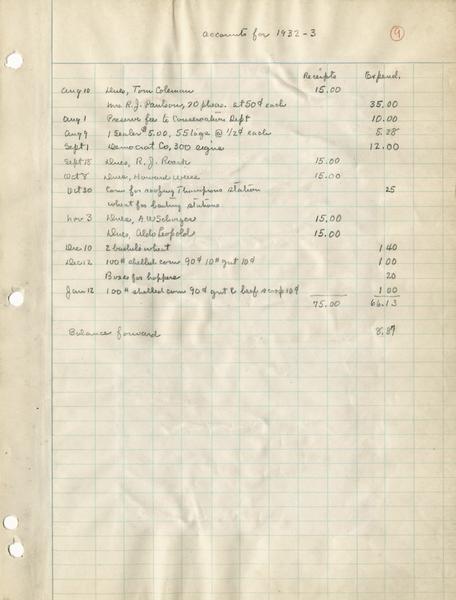 Accounts for 1932-3
9
Receipts Expend.
Aug 10 Dues, Tom Coleman 15.00
Mrs R.J. Paulson, 70 pheas. at 50¢ each 35.00
Aug 1 Preserve fee to Conservation Dept 10.00
Aug 9 1 Sealer $5.00, 55 tags @ 1/2¢ each 5.28
Sept 1 Democrat Co, 300 signs 12.00
Sept 18 Dues, R.J. Roark 15.00
Oct 8 Dues, Howard Weiss 15.00
Oct 30 Corn for roofing Thompsons station 25
wheat for baiting stations
Nov 3 Dues, A W Schorger 15.00
Dues, Aldo Leopold 15.00
Dec 10 2 bushels wheat 1 40
Dec 12 100# shelled corn 90¢ 10# grit 10¢ 1 00
Boxes for hoppers 20
Jan 12 100# shelled corn 90¢ grit & beef scrap 10¢ 1 00
75.00 66.13
Balance forward 8.87